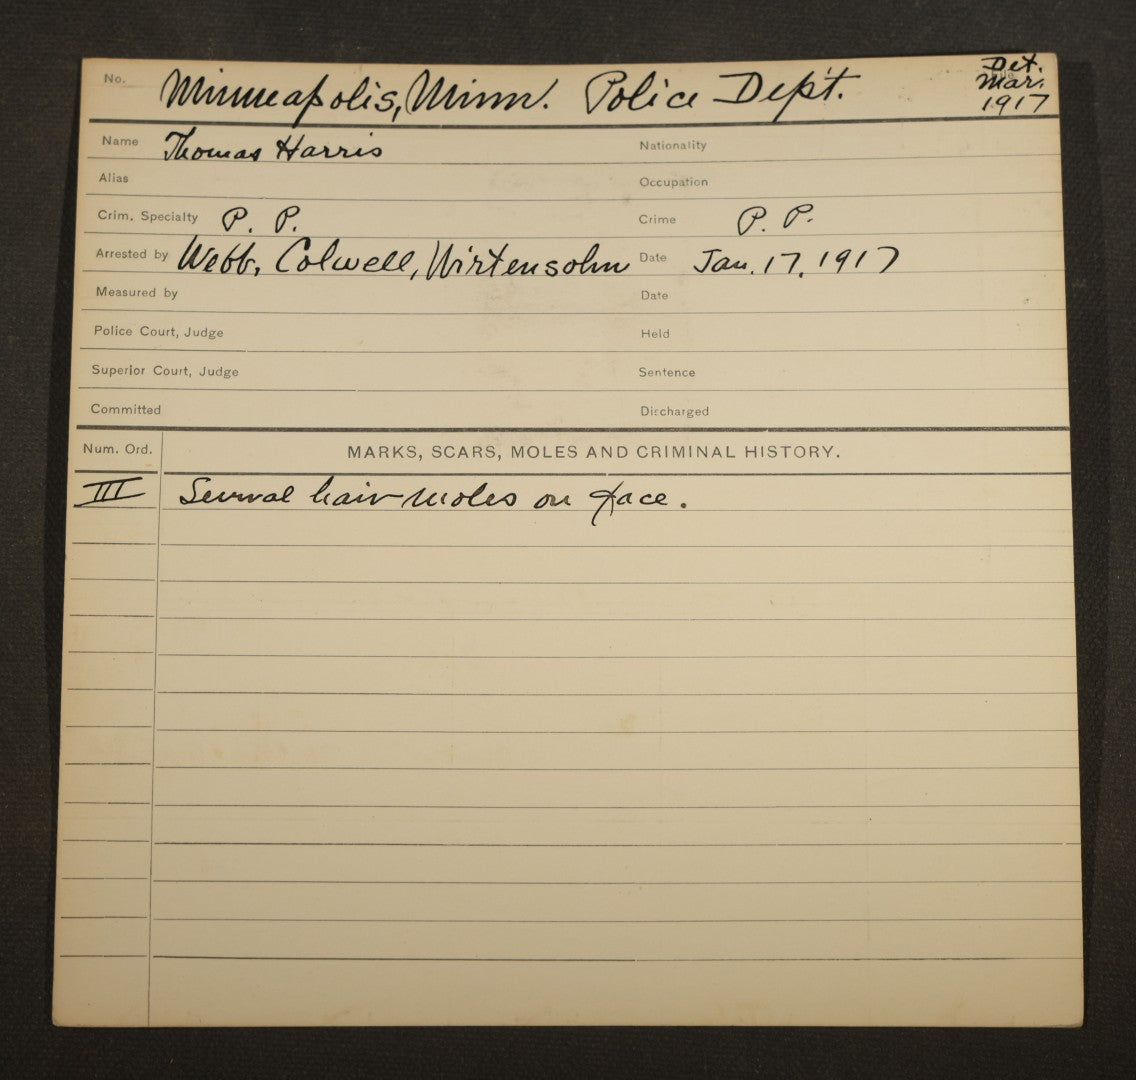 No. Minneapolis, Minn. Police Dep't. Det.
Mar.
1917
Name Thomas Harris Nationality
Alias Occupation
Crim. Specialty P. P. Crime P. P.
Arrested by Webb, Colwell, Wirtensohn Date Jan. 17, 1917
Measured by Date
Police Court, Judge Held
Superior Court, Judge Sentence
Committed Discharged
Num. Ord. MARKS, SCARS, MOLES AND CRIMINAL HISTORY.
III Several hair moles on face.